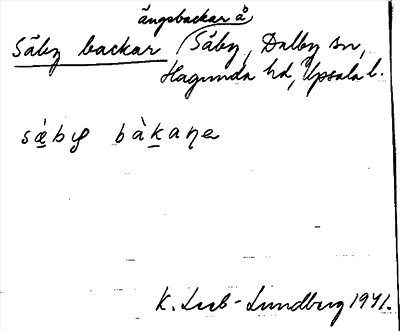 ängsbackar å
Säby backar (Säby, Dalby sn,
Hagunda hd, Upsala l.
sæ̀by bàkaṇe
K. Leib-Lundberg 1941.